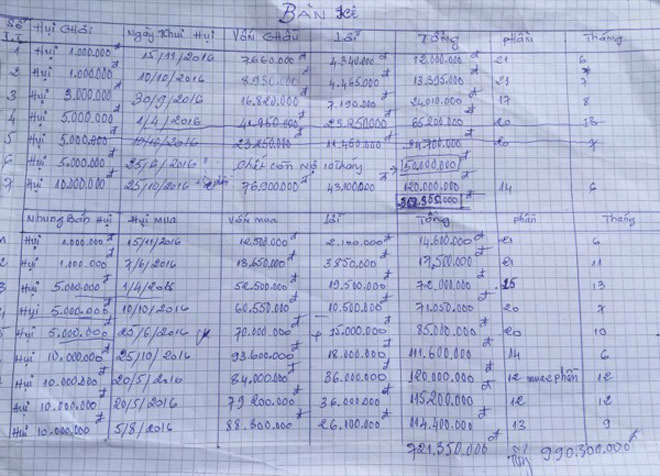 BẢN KÊ
Số TT Hụi Chơi Ngày Khui Hụi Vốn Chầu Lời Tổng phần Tháng
1 Hụi 1.000.000đ 15/11/2016 7.660.000đ 4.340.000đ 12.000.000đ 21 6
2 Hụi 1.000.000đ 10/10/2016 4.465.000đ 13.395.000đ 21
3 Hụi 3.000.000đ 30/9/2016 16.820.000đ 7.190.000đ 24.010.000đ 17 8
4 Hụi 5.000.000đ 1/4/2016 41.950.000đ 23.250.000đ 65.200.000đ 20 13
5 Hụi 5.000.000đ 23.250.000đ 11.450.000đ 34.700.000đ 20 7
6 Hụi 5.000.000đ 25/4/2016 Chết còn nợ 10 tháng 50.000.000đ
7 Hụi 10.000.000đ 25/10/2016 76.900.000đ 43.100.000đ 120.000.000đ 14 6
Những Bán Hụi Hụi Mua Vốn mua Lời Tổng phần Tháng
Hụi 1.000.000đ 15/11/2016 12.500.000đ 2.100.000đ 14.600.000đ 21 6
2 Hụi 1.000.000 7/6/2016 13.650.000đ 3.850.000đ 17.500.000đ 21 11
3 Hụi 5.000.000đ 1/4/2016 52.500.000đ 19.500.000đ 72.000.000đ 25 13
Hụi 5.000.000đ 10/10/2016 60.550.000đ 10.500.000đ 71.050.000đ 20 7
Hụi 5.000.000đ 25/6/2016 70.000.000đ 15.000.000đ 85.000.000đ 20 10
Hụi 10.000.000đ 25/10/2016 93.600.000đ 18.000.000đ 111.600.000đ 14 6
Hụi 10.000.000đ 20/5/2016 84.000.000đ 36.000.000đ 120.000.000đ 12 phần 12
Hụi 10.000.000đ 20/5/2016 79.200.000đ 36.000.000đ 115.200.000đ 12 12
Hụi 10.000.000đ 5/8/2016 88.300.000đ 26.100.000đ 114.400.000đ 13 9
721.350.000đ 990.300.000đ